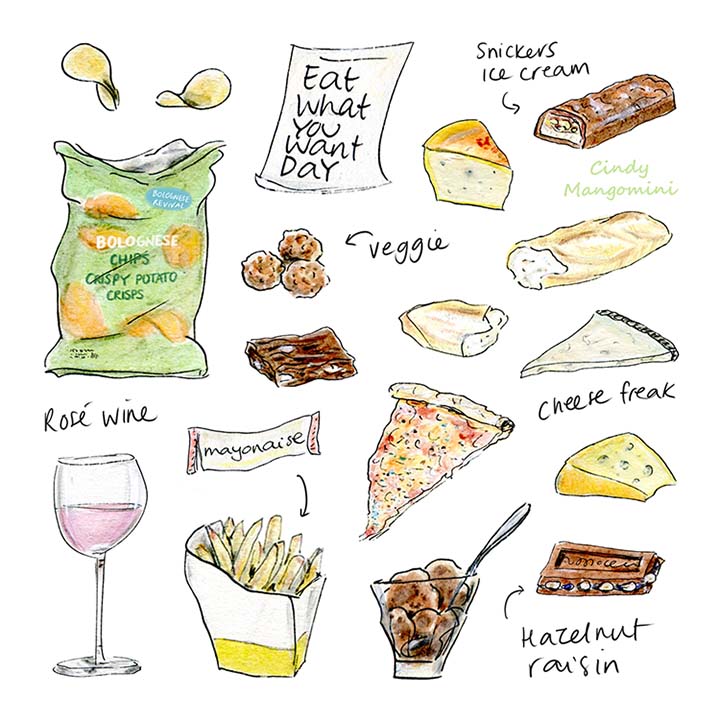 Snickers
ice cream
Eat
What
you
want
DAY
Cindy
Mangomini
BOLOGNESE
REVIVAL
BOLOGNESE
CHIPS
CRISPY POTATO
CRISPS
veggie
Cheese freak
Rosé wine
mayonaise
Hazelnut
raisin